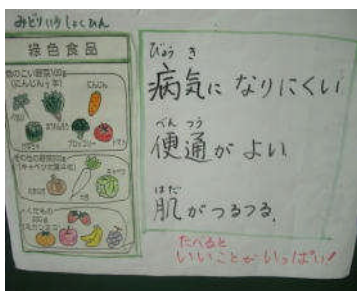 みどりいろ しょくひん
緑色食品
色のこい野菜100g
(にんじん½本)
にんじん
ほうれんそう
ブロッコリー
トマト
その他の野菜200g
(キャベツの葉4枚)
キャベツ
くだもの
200g
びょうき
病気に なりにくい
べんつう
便通が よい
はだ
肌がつるつる。
たべると
いいことが いっぱい!